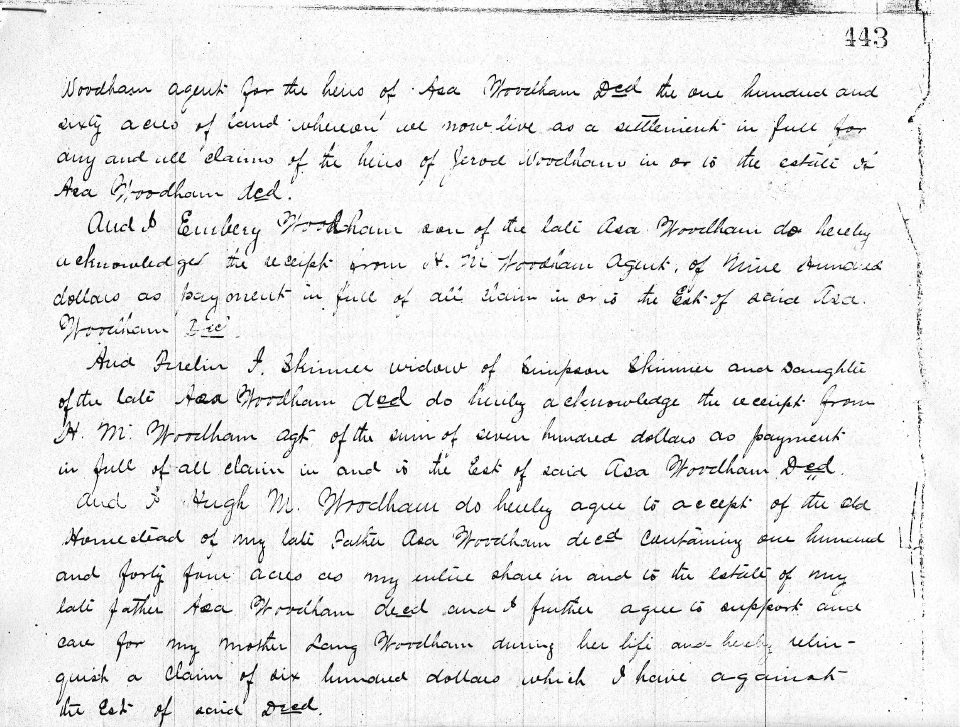 443
Woodham agent for the heirs of Asa Woodham Decd the one hundred and
sixty acres of land whereon we now live as a settlement in full for
any and all claims of the heirs of Jerod Woodham in or to the estate of
Asa Woodham decd.
And I Embery Woodham son of the late Asa Woodham do hereby
acknowledged the receipt from H. M Woodham Agent, of Nine Hundred
dollars as payment in full of all claim in or to the Est of said Asa
Woodham Dec
And I. Skinner widow of Simpson Skinner and Daughter
of the late Asa Woodham decd do hereby acknowledge the receipt from
H. M. Woodham agt of the sum of seven hundred dollars as payment
in full of all claim in and to the Est of said Asa Woodham Decd.
And I Hugh M. Woodham do hereby agree to accept of the old
Homestead of my late Father Asa Woodham decd containing one hundred
and forty four acres as my entire share in and to the estate of my
late father Asa Woodham decd and I further agree to support and
care for my mother Woodham during her life and hereby relin-
quish a claim of six hundred dollars which I have against
the Est of said Decd.